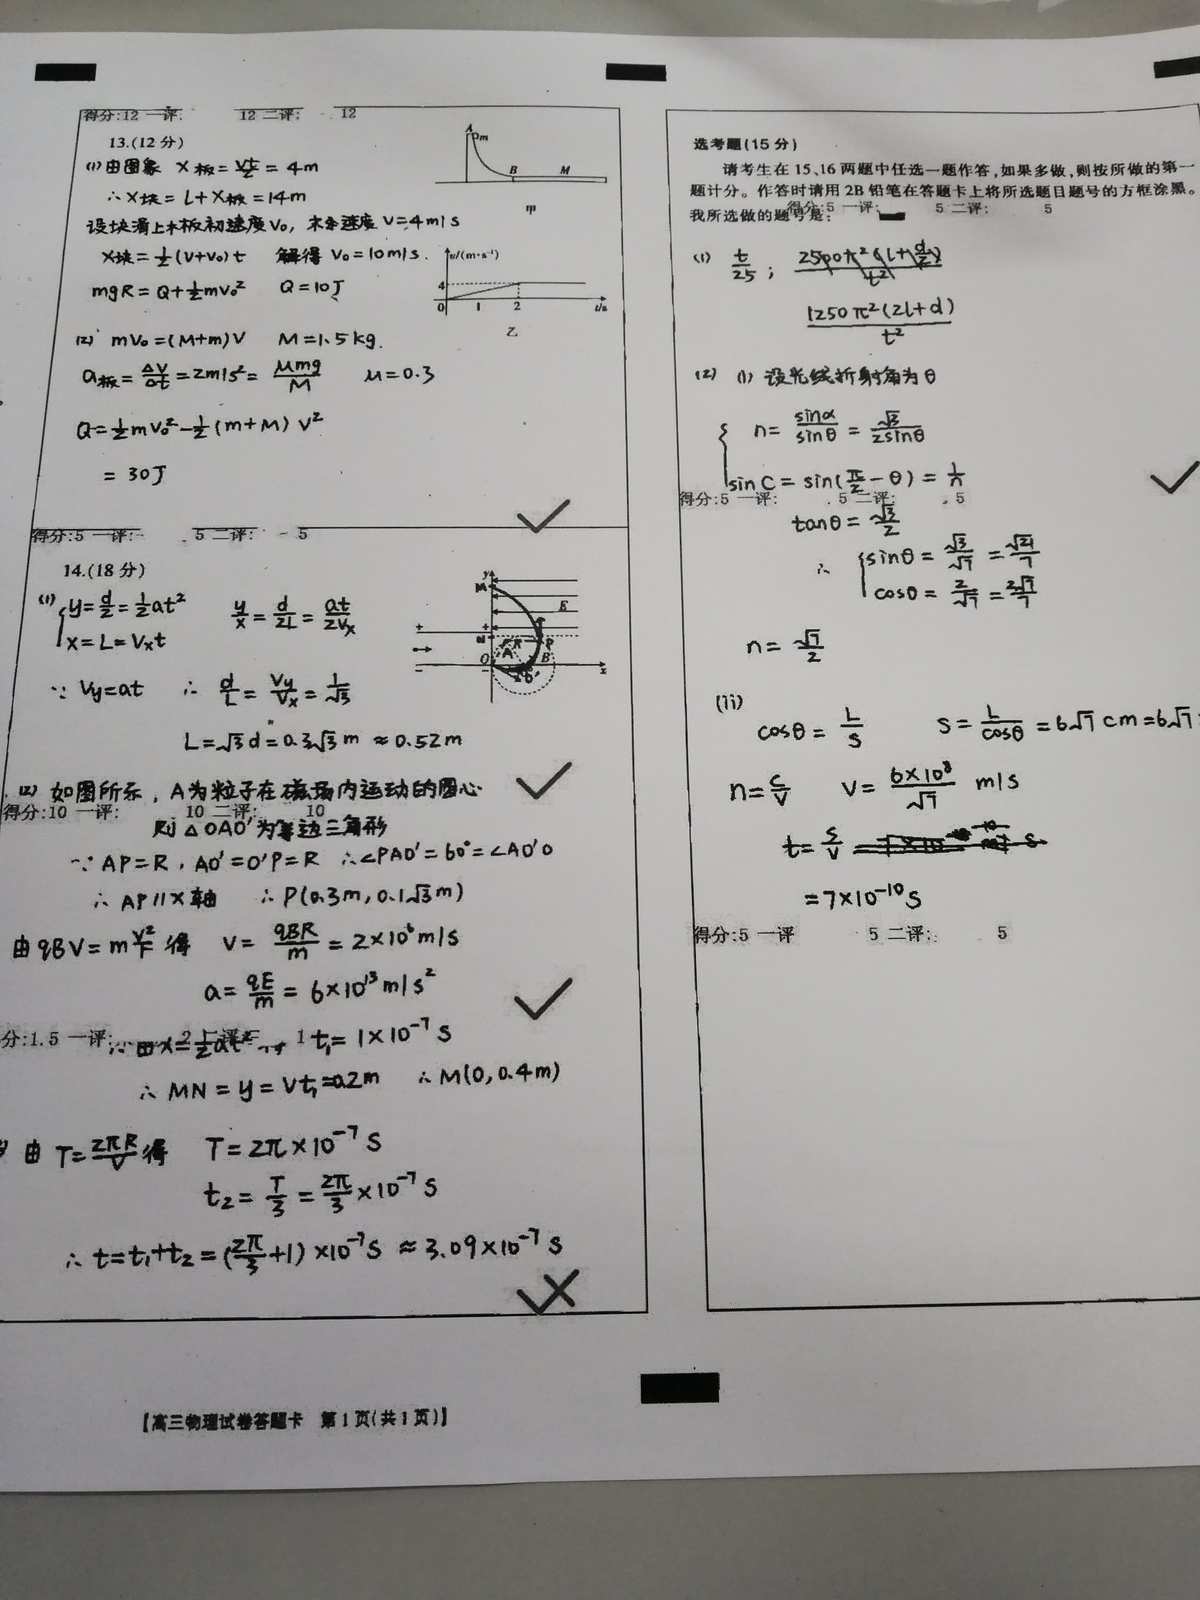 得分:12 一评: 12 二评: 12
13.(12 分)
(1) 由图象 X板 = vt/2 = 4m
∴ X块 = L + X板 = 14m
设块滑上木板初速度V₀, 末速度 V=4m/s
X块 = 1/2(V+V₀)t 解得 V₀=10m/s.
mgR = Q + 1/2mV₀² Q=10J
A m B M
甲
v/(m·s⁻¹)
4
0 1 2 t/s
乙
(2) mV₀=(M+m)V M=1.5kg.
a板 = ΔV/Δt = 2m/s² = μmg/M μ=0.3
Q = 1/2mV₀² - 1/2(m+M)V²
= 30J
得分:5 一评: 5 二评: 5
14.(18 分)
(1) { y = d/2 = 1/2at² y/x = d/2L = at/2Vx
x = L = Vxt
∵ Vy=at ∴ d/L = Vy/Vx = 1/√3
L=√3d=0.3√3m ≈0.52m
y M E N P R A O B O' x
(2) 如图所示, A为粒子在磁场内运动的圆心
得分:10 一评: 10 二评: 10
则△OAO'为等边三角形
∵ AP=R, AO'=O'P=R ∴∠PAO'=60°=∠AO'O
∴ AP//X轴 ∴ P(0.3m, 0.1√3m)
由qBV=mV²/r 得 V= qBR/m = 2×10⁶m/s
a= qE/m = 6×10¹³m/s²
分:1.5 一评: 2 二评: 1
∴ 由x=1/2at² t₁= 1×10⁻⁷s
∴ MN = y = Vt₁=0.2m ∴ M(0, 0.4m)
由 T= 2πR/V 得 T=2π×10⁻⁷s
t₂ = T/3 = 2π/3×10⁻⁷s
∴ t=t₁+t₂ = (2π/3+1)×10⁻⁷s ≈ 3.09×10⁻⁷s
【高三物理试卷答题卡 第1页(共1页)】
选考题(15 分)
请考生在 15、16 两题中任选一题作答,如果多做,则按所做的第一
题计分。作答时请用 2B 铅笔在答题卡上将所选题目题号的方框涂黑。
得分:5 一评: 5 二评: 5
我所选做的题号是:
(1) t/25 ; 2500π²(L+d/2)/t²
1250π²(2L+d)/t²
(2) (i) 设光线折射角为θ
{ n= sinα/sinθ = √3/2sinθ
sinC = sin(π/2-θ) = 1/n
得分:5 一评: 5 二评: 5
tanθ = √3/2
∴ { sinθ = √3/√7 = √21/7
cosθ = 2/√7 = 2√7/7
n= √7/2
(ii)
cosθ = L/S S= L/cosθ = 6√7cm=6√7
n= c/v V= 6×10⁸/√7 m/s
t= S/V
= 7×10⁻¹⁰s
得分:5 一评 5 二评: 5